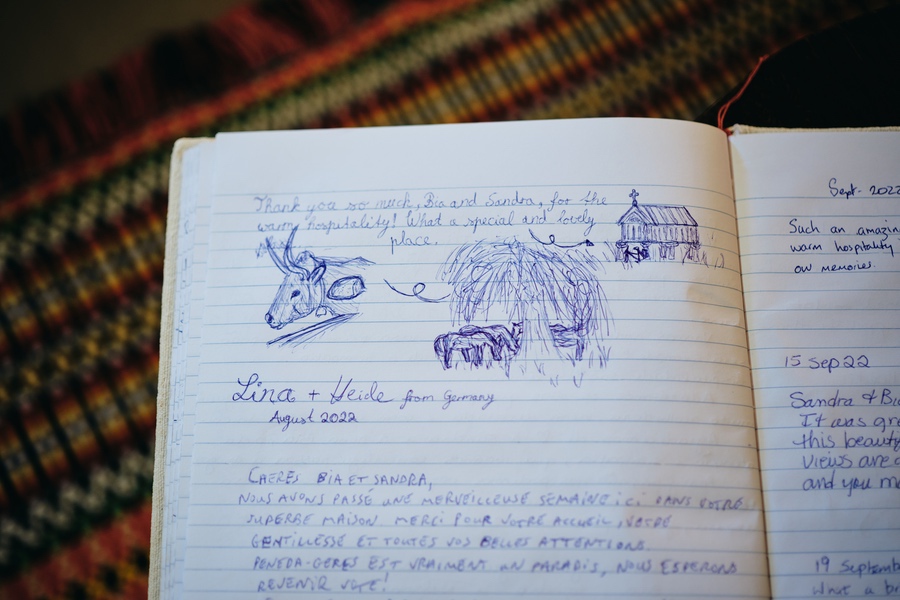 Thank you so much, Bia and Sandra, for the
warm hospitality! What a special and lovely
place.
Lina + Heide from Germany
August 2022
CHERES BIA ET SANDRA,
NOUS AVONS PASSÉ UNE MERVEILLEUSE SEMAINE ici DANS VOTRE
SUPERBE MAISON MERCI POUR VOTRE ACCUEIL, VOTRE
GENTILLESSE ET TOUTES VOS BELLES ATTENTIONS.
PENEDA-GERES EST VRAIMENT UN PARADIS, NOUS ESPERONS
REVENIR VITE!
Sept. 2022
Such an amazin
warm hospitality
our memories.
15 Sep 22
Sandra & Bi
It was gre
this beauty
views are
and you m
19 Septemb
What a br